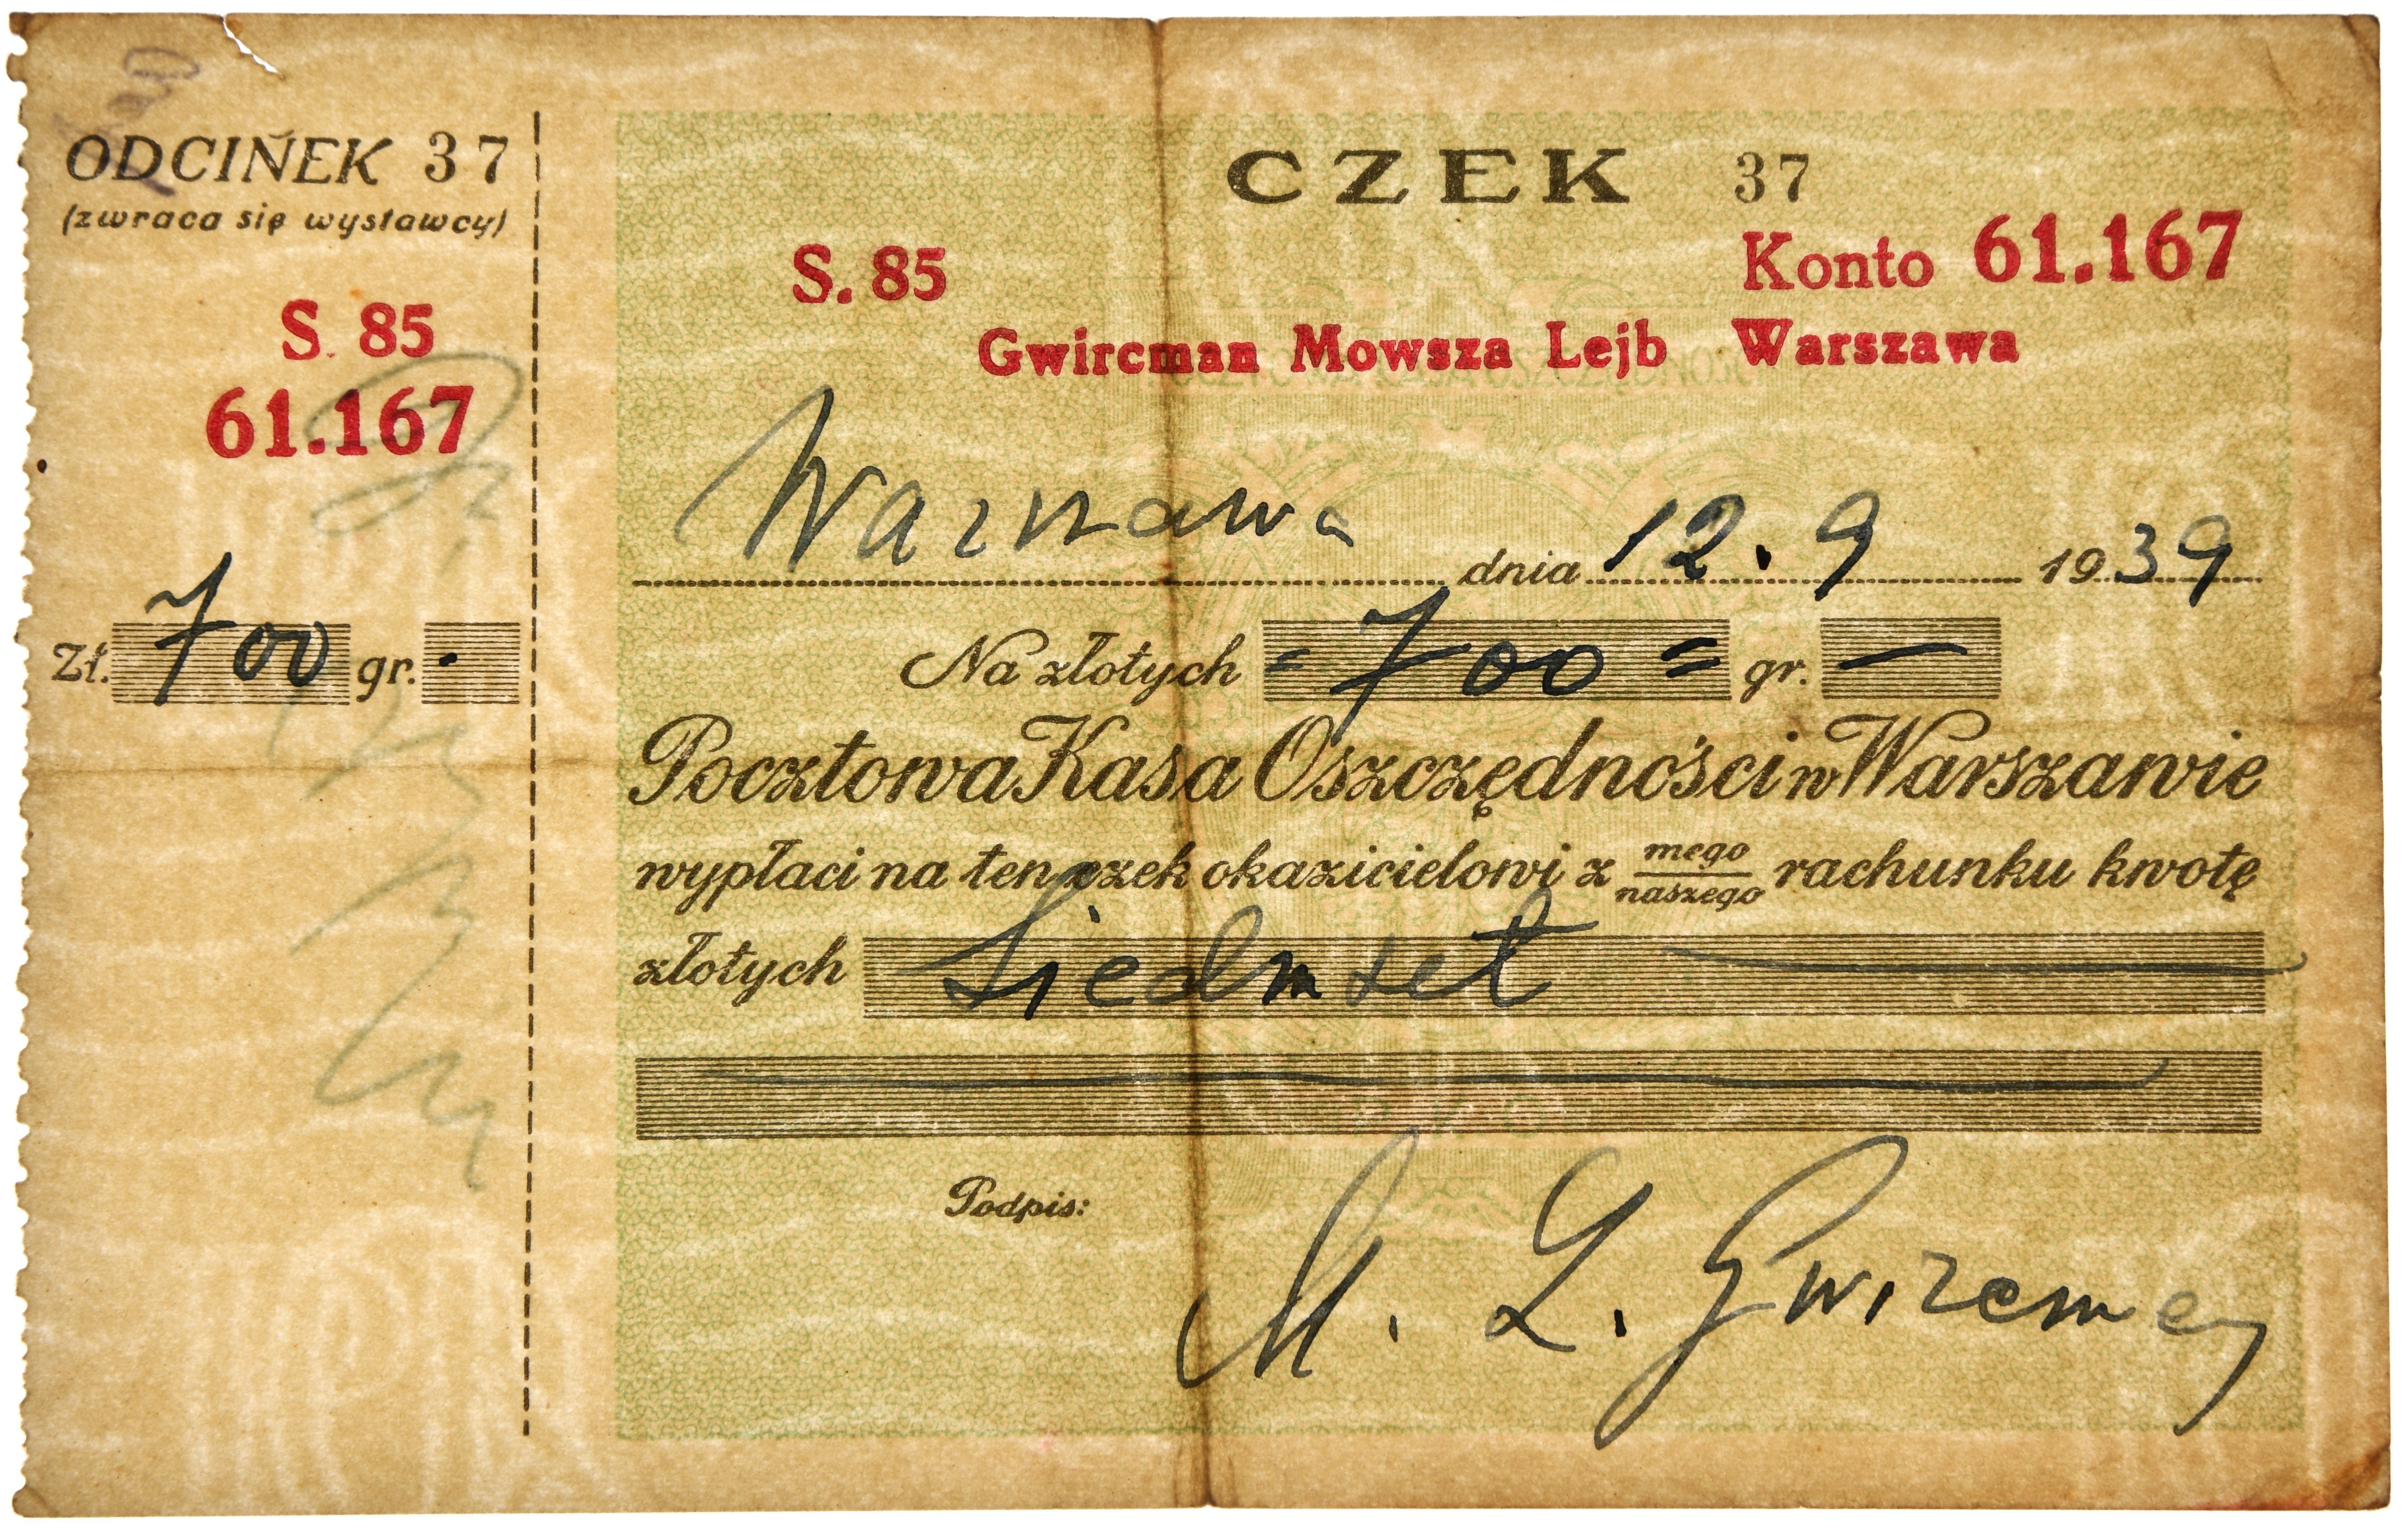 ODCINEK 37
(zwraca się wystawcy)
S. 85
61.167
Zł. 700 gr. -
CZEK 37
S. 85 Konto 61.167
Gwircman Mowsza Lejb Warszawa
Warszawa dnia 12.9 1939
Na złotych =700= gr. —
Pocztowa Kasa Oszczędności w Warszawie
wypłaci na ten czek okazicielowi z mego/naszego rachunku kwotę
złotych Siedmset
Podpis: M. L. Gwircman